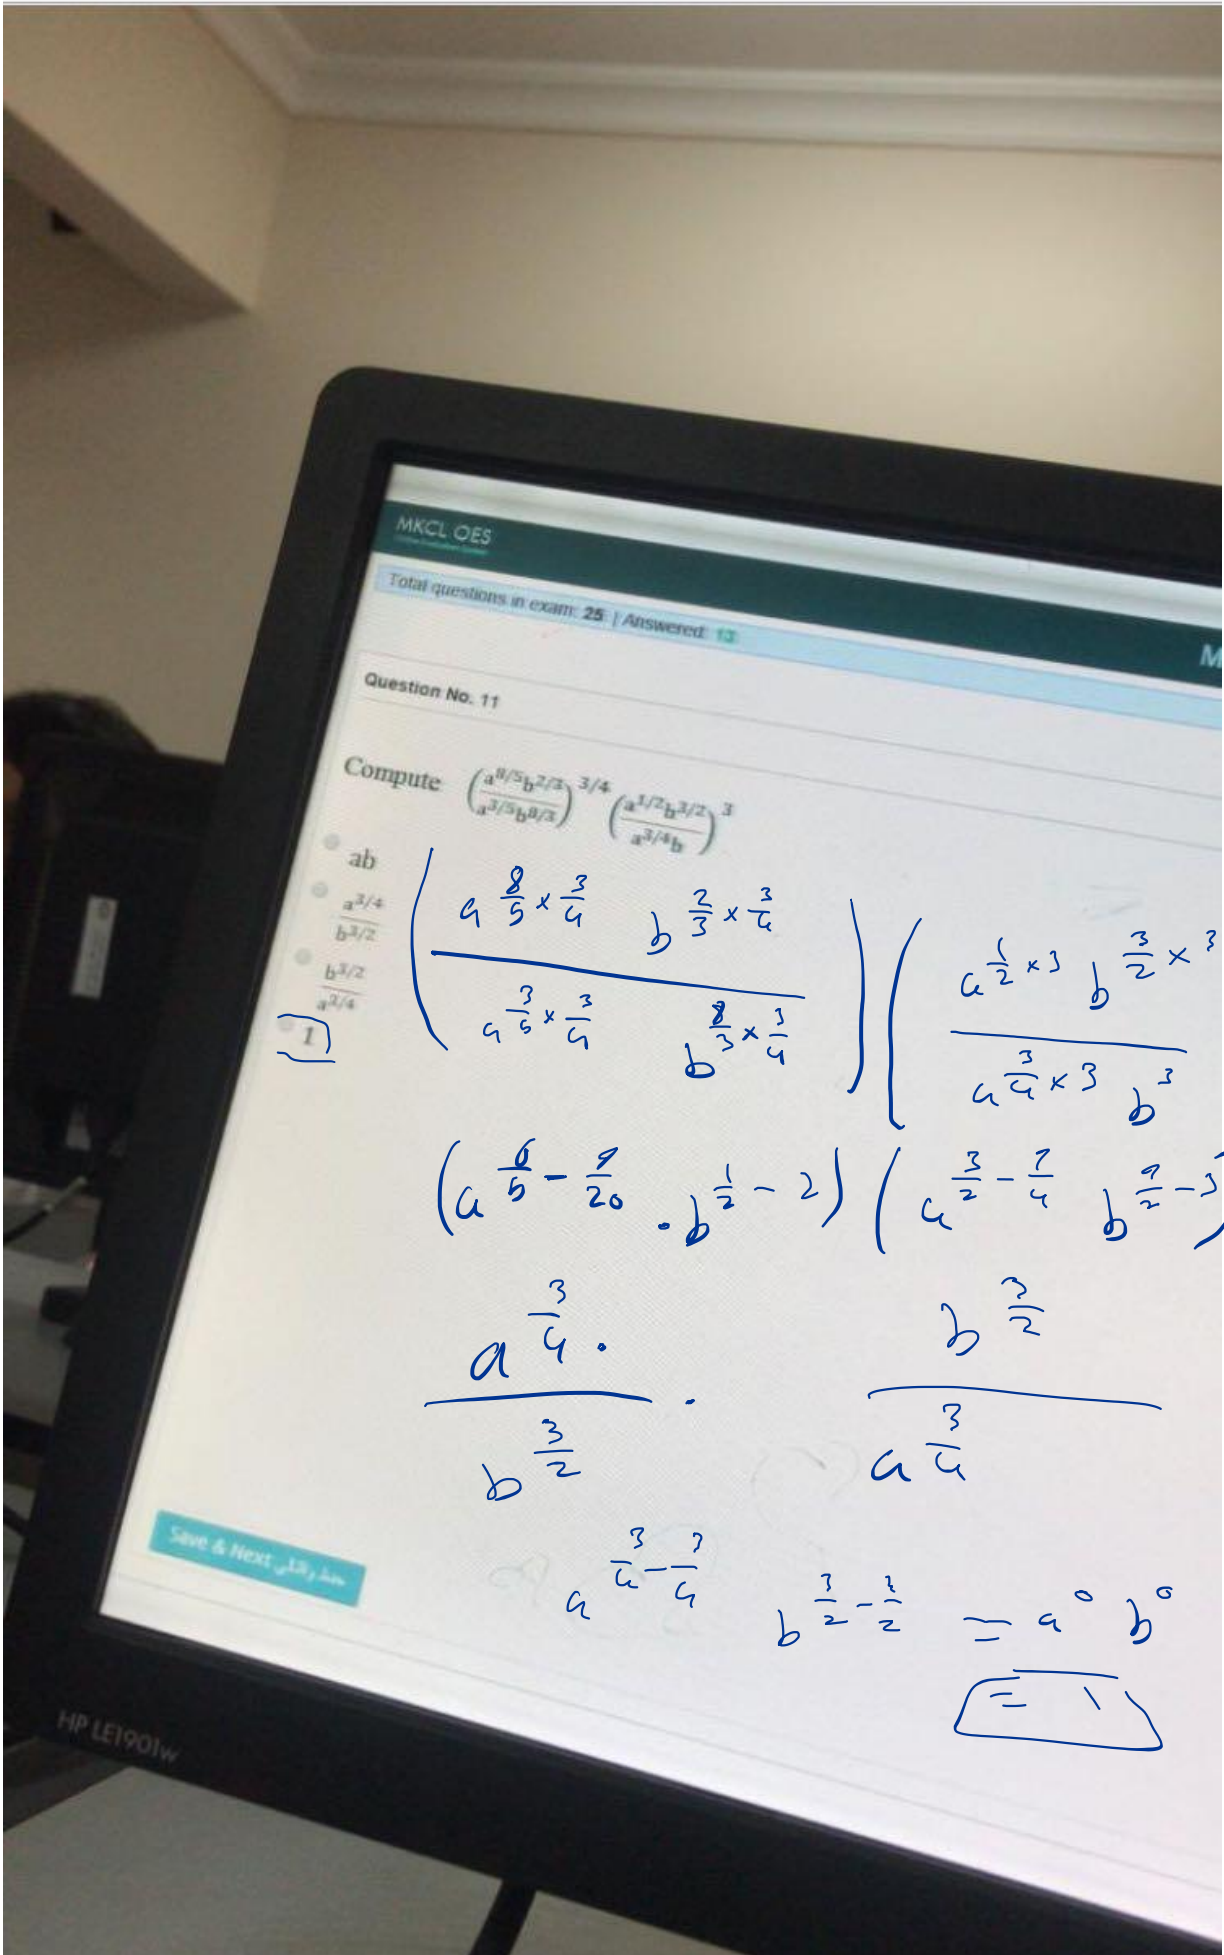 MKCL OES
Total questions in exam: 25 | Answered: 13
M
Question No. 11
Compute (a^8/5 b^2/3 / a^3/5 b^8/3)^3/4 (a^1/2 b^3/2 / a^3/4 b)^3
ab
a^3/4 / b^3/2
b^3/2 / a^3/4
1
(a^(8/5 × 3/4) b^(2/3 × 3/4) / a^(3/5 × 3/4) b^(8/3 × 3/4)) (a^(1/2 × 3) b^(3/2 × 3) / a^(3/4 × 3) b^3
(a^(6/5 - 9/20) . b^(1/2 - 2)) (a^(3/2 - 9/4) b^(9/2 - 3))
a^(3/4) . / b^(3/2) . b^(3/2) / a^(3/4)
a^(3/4 - 3/4) b^(3/2 - 3/2) = a^0 b^0
= 1
Save & Next حفظ والتالي
HP LE1901w